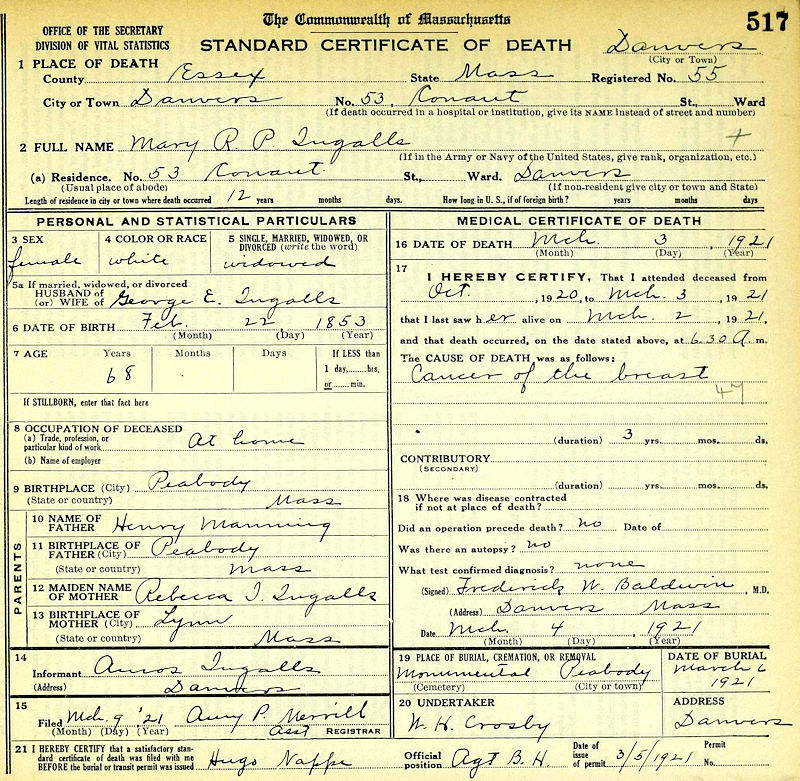 The Commonwealth of Massachusetts
517
OFFICE OF THE SECRETARY
DIVISION OF VITAL STATISTICS
STANDARD CERTIFICATE OF DEATH
Danvers
(City or Town)
1 PLACE OF DEATH
County Essex State Mass Registered No. 55
City or Town Danvers No. 53, Conant St., Ward
(If death occurred in a hospital or institution, give its NAME instead of street and number)
2 FULL NAME Mary R. P. Ingalls
(If in the Army or Navy of the United States, give rank, organization, etc.)
(a) Residence. No. 53 Conant St., Ward. Danvers
(Usual place of abode) (If non-resident give city or town and State)
Length of residence in city or town where death occurred 12 years months days. How long in U. S., if of foreign birth? years months days
PERSONAL AND STATISTICAL PARTICULARS
3 SEX
female
4 COLOR OR RACE
white
5 SINGLE, MARRIED, WIDOWED, OR
DIVORCED (write the word)
widowed
5a If married, widowed, or divorced
HUSBAND of
(or) WIFE of George E. Ingalls
6 DATE OF BIRTH Feb. 22 1853
(Month) (Day) (Year)
7 AGE Years Months Days If LESS than
68 1 day,......hrs.
or......min.
If STILLBORN, enter that fact here
8 OCCUPATION OF DECEASED
(a) Trade, profession, or
particular kind of work At home
(b) Name of employer
9 BIRTHPLACE (City) Peabody
(State or country) Mass
PARENTS
10 NAME OF
FATHER Henry Manning
11 BIRTHPLACE OF
FATHER (City) Peabody
(State or country) Mass
12 MAIDEN NAME
OF MOTHER Rebecca I. Ingalls
13 BIRTHPLACE OF
MOTHER (City) Lynn
(State or country) Mass
14
Informant Amos Ingalls
(Address) Danvers
15
Filed Mch. 9 '21 Amy P. Merrill
(Month) (Day) (Year) Asst REGISTRAR
MEDICAL CERTIFICATE OF DEATH
16 DATE OF DEATH Mch. 3, 1921
(Month) (Day) (Year)
17
I HEREBY CERTIFY, That I attended deceased from
Oct., 1920, to Mch. 3, 1921
that I last saw her alive on Mch. 2, 1921,
and that death occurred, on the date stated above, at 6.30 A. m.
The CAUSE OF DEATH was as follows:
Cancer of the breast
47
(duration) 3 yrs. mos. ds.
CONTRIBUTORY
(SECONDARY)
(duration) yrs. mos. ds.
18 Where was disease contracted
if not at place of death?
Did an operation precede death? no Date of
Was there an autopsy? no
What test confirmed diagnosis? none
(Signed) Frederick W. Baldwin, M.D.
(Address) Danvers Mass
Date Mch. 4, 1921
(Month) (Day) (Year)
19 PLACE OF BURIAL, CREMATION, OR REMOVAL
Monumental Peabody
(Cemetery) (City or town)
DATE OF BURIAL
March 6
1921
20 UNDERTAKER
W. H. Crosby
ADDRESS
Danvers
21 I HEREBY CERTIFY that a satisfactory stan-
dard certificate of death was filed with me
BEFORE the burial or transit permit was issued Hugo Nappe
Official
position Agt B. H.
Date of
issue
of permit 3/5/1921
Permit
No.